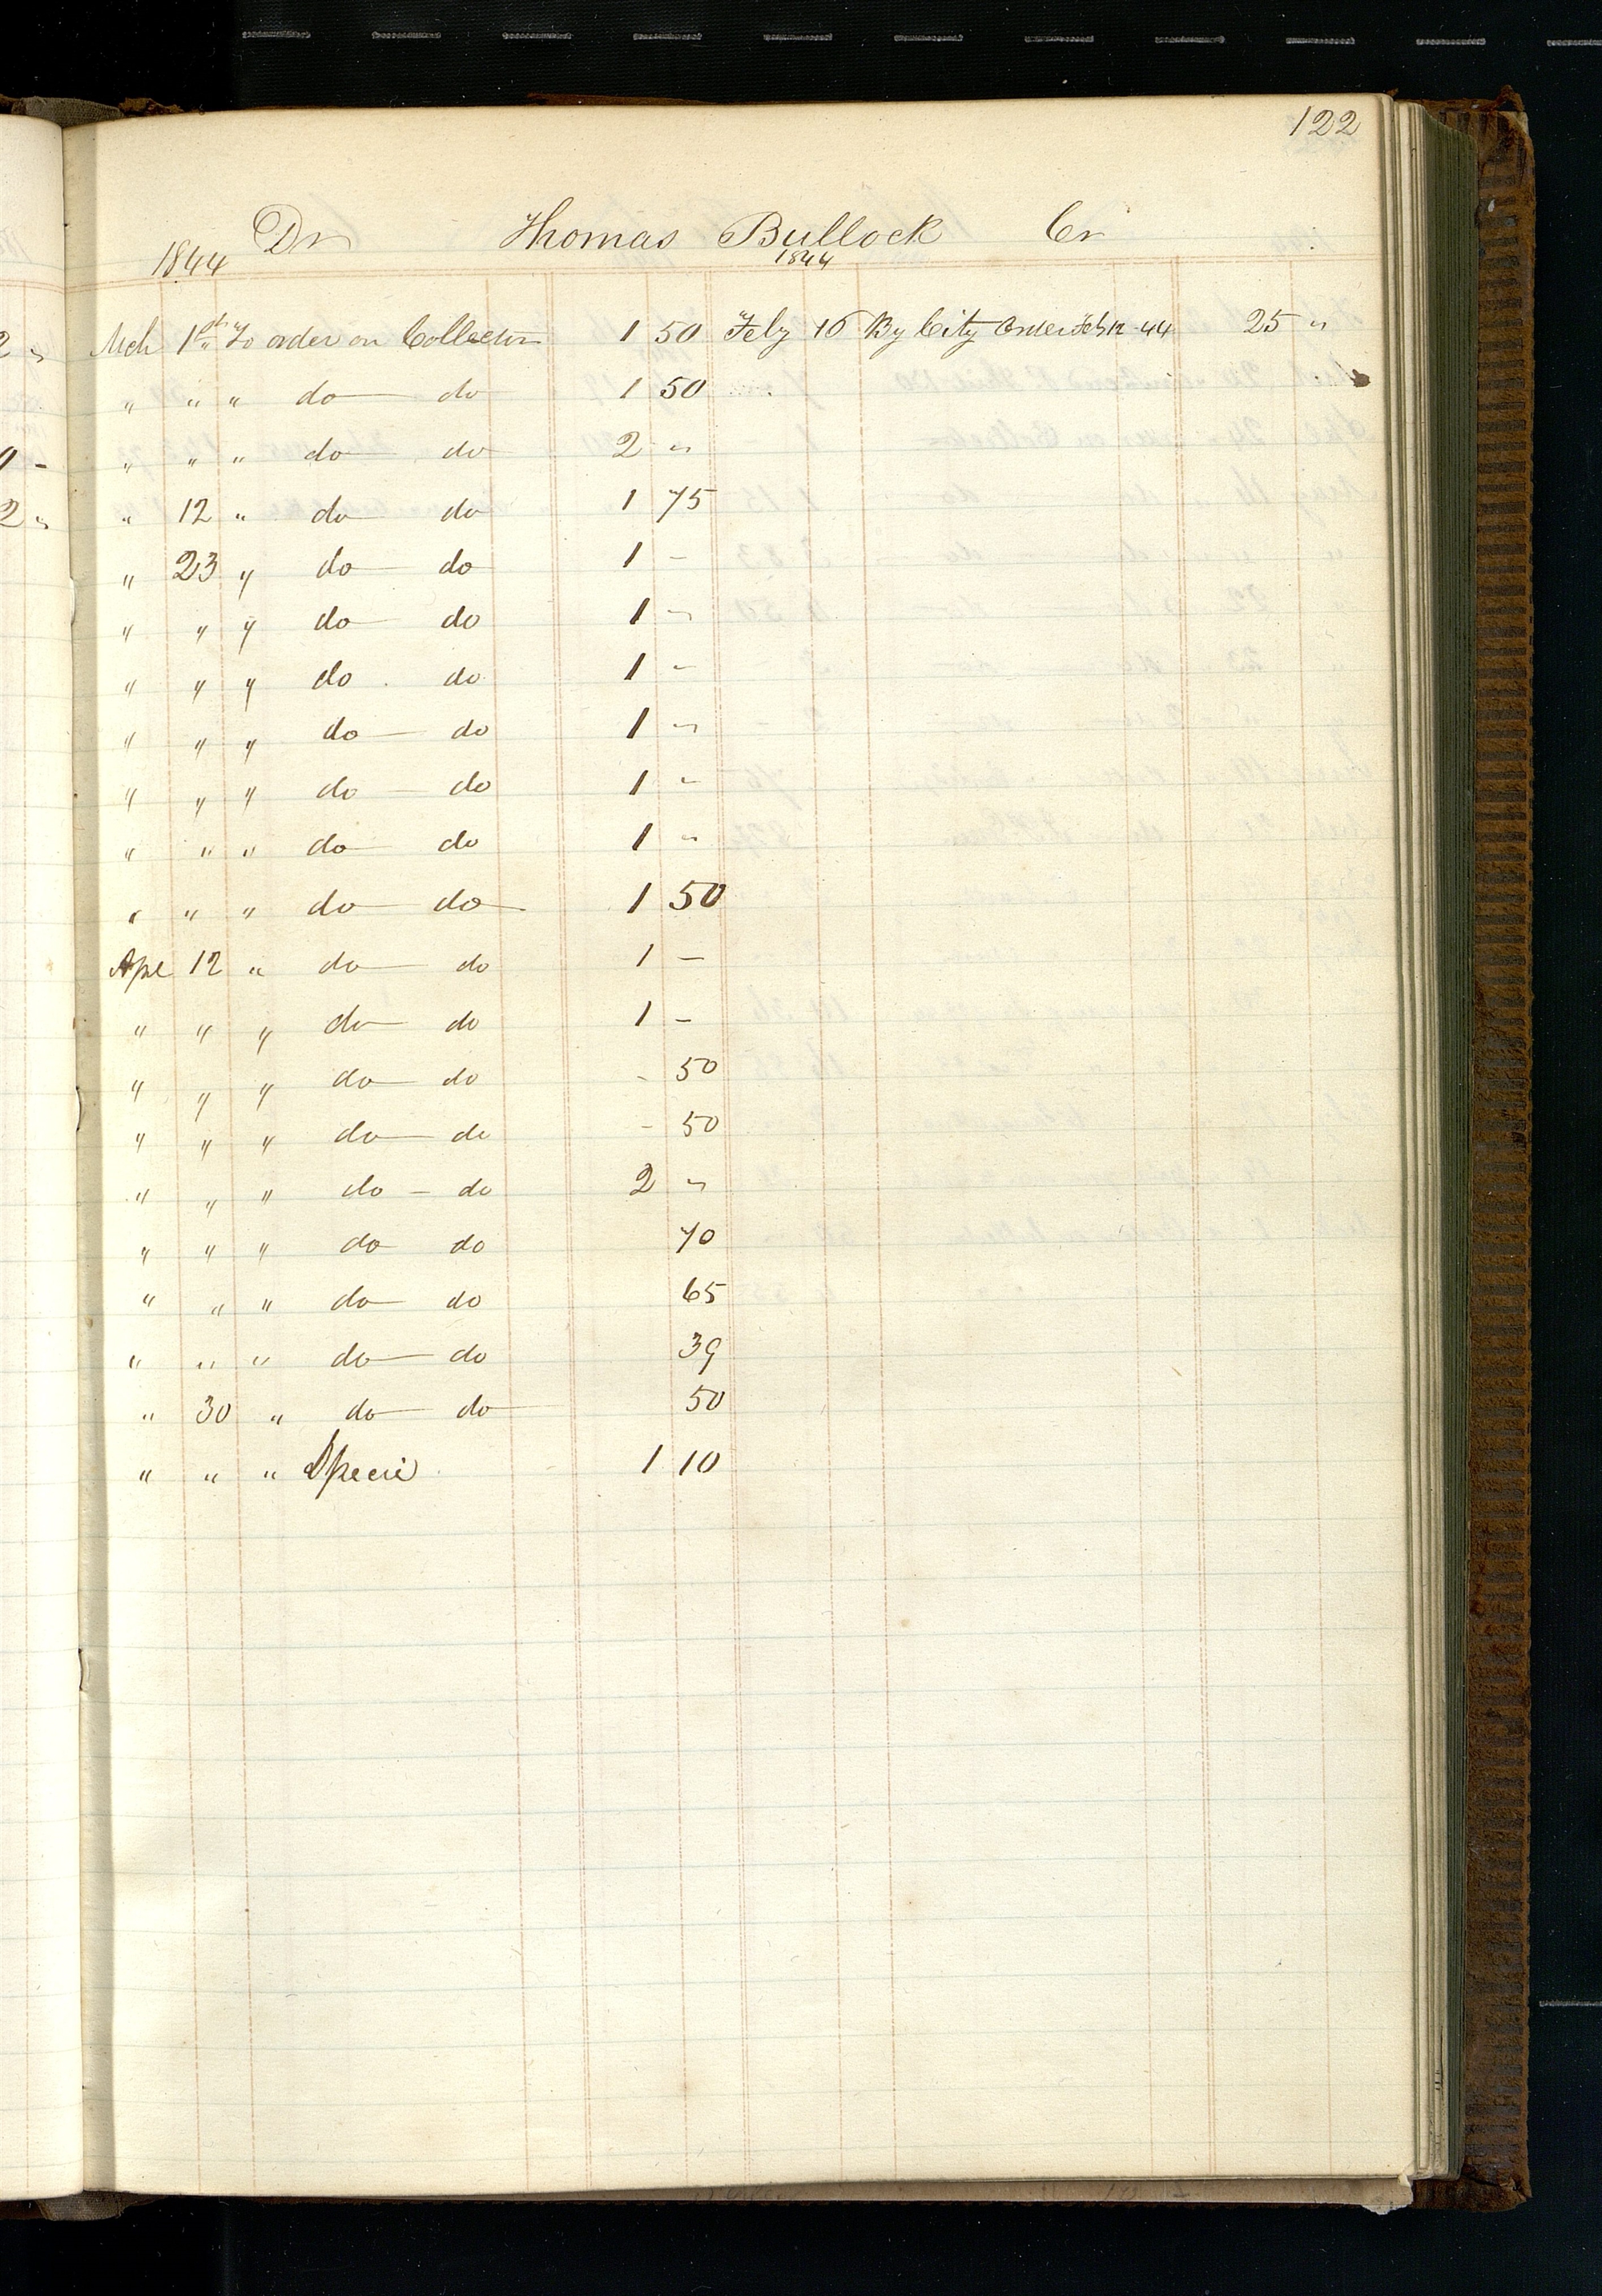 122
Dr Thomas Bullock Cr
1844 1844
Mch 1st " To order on Collector 1 50 Feby 16 By City Order Feb 12 -44 25 "
" " " do do 1 50
" " " do do 2 "
" 12 " do do 1 75
" 23 " do do 1 -
" " " do do 1 "
" " " do do 1 -
" " " do do 1 "
" " " do do 1 -
" " " do do 1 "
" " " do do 1 50
Apl 12 " do do 1 -
" " " do do 1 -
" " " do do - 50
" " " do do - 50
" " " do - do 2 "
" " " do do 70
" " " do do 65
" " " do do 39
" 30 " do do 50
" " " Specie 1 10